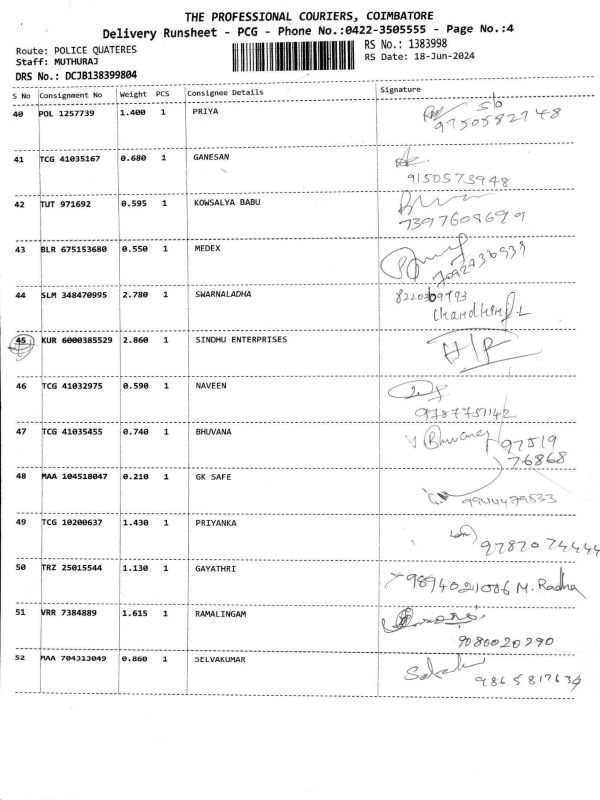 THE PROFESSIONAL COURIERS, COIMBATORE
Delivery Runsheet - PCG - Phone No.:0422-3505555 - Page No.:4
Route: POLICE QUATERES
RS No.: 1383998
Staff: MUTHURAJ
RS Date: 18-Jun-2024
DRS No.: DCJB138399804
S No Consignment No Weight PCS Consignee Details Signature
40 POL 1257739 1.400 1 PRIYA S/o
9750582748
41 TCG 41035167 0.680 1 GANESAN
9150573948
42 TUT 971692 0.595 1 KOWSALYA BABU
7397608699
43 BLR 675153680 0.550 1 MEDEX
44 SLM 348470995 2.780 1 SWARNALADHA
45 KUR 6000385529 2.860 1 SINDHU ENTERPRISES
46 TCG 41032975 0.590 1 NAVEEN
9787751142
47 TCG 41035455 0.740 1 BHUVANA Bhuvana 97519
76868
48 MAA 104518047 0.210 1 GK SAFE
9944479533
49 TCG 10200637 1.430 1 PRIYANKA
9787074444
50 TRZ 25015544 1.130 1 GAYATHRI 9894021006 M. Radha
51 VRR 7384889 1.615 1 RAMALINGAM
9080020290
52 MAA 704313049 0.860 1 SELVAKUMAR
9865817634